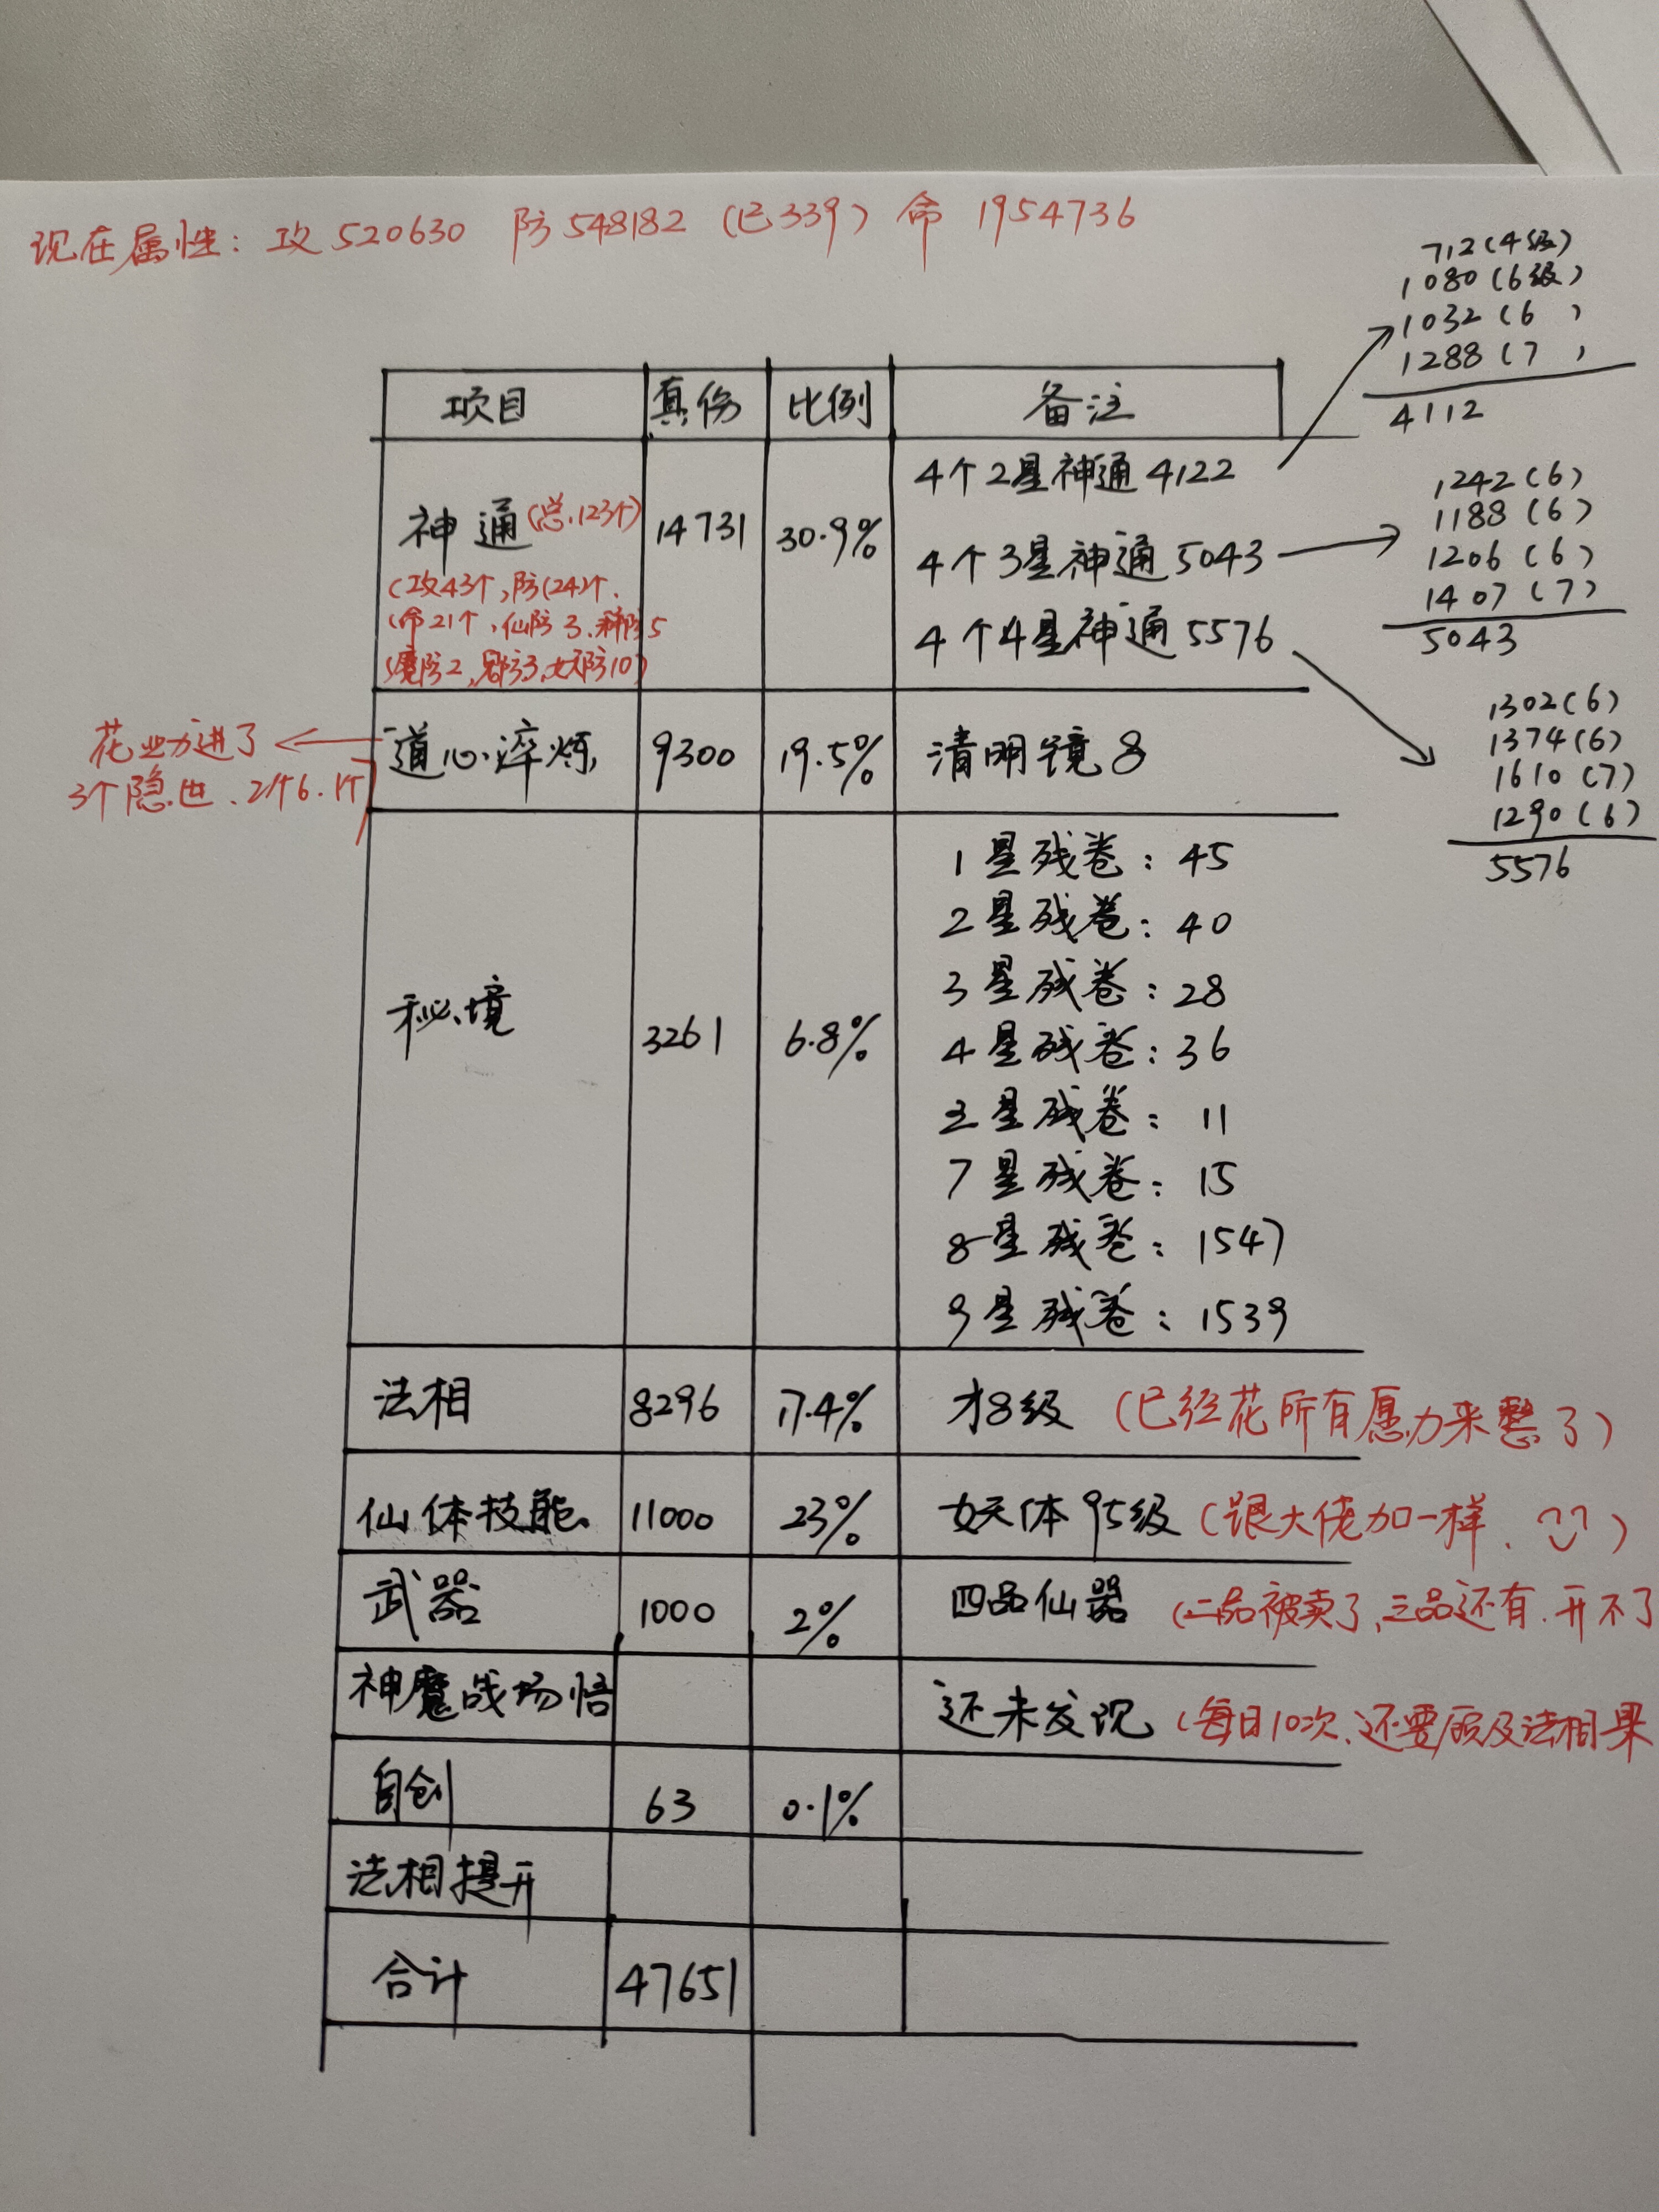 现在属性：攻520630 防548182（已339）命 1954736
712（4级）
1080（6级）
1032（6 ）
1288（7 ）
4112
项目 真伤 比例 备注
神通（总.123个） 14731 30.9%
（攻43个，防（24）个.
（命21个，仙防3.神防5
（魔防2，鬼防3，妖防10）
4个2星神通4122
4个3星神通5043
4个4星神通5576
1242（6）
1188（6）
1206（6）
1407（7）
5043
1302（6）
1374（6）
1610（7）
1290（6）
5576
道心淬炼 9300 19.5% 清明镜8
花业力进了
3个隐世.2个6.1个7
秘境 3261 6.8%
1星残卷：45
2星残卷：40
3星残卷：28
4星残卷：36
星残卷：11
7星残卷：15
8星残卷：1547
9星残卷：1539
法相 8296 17.4% 才8级（已经花所有愿力来整了）
仙体技能 11000 23% 妖体95级（跟大佬加一样.）
武器 1000 2% 四品仙器（二品被卖了，三品还有.开不了
神魔战场悟 还未发现（每日10次.还要顾及法相果
自创 63 0.1%
法相提升
合计 47651